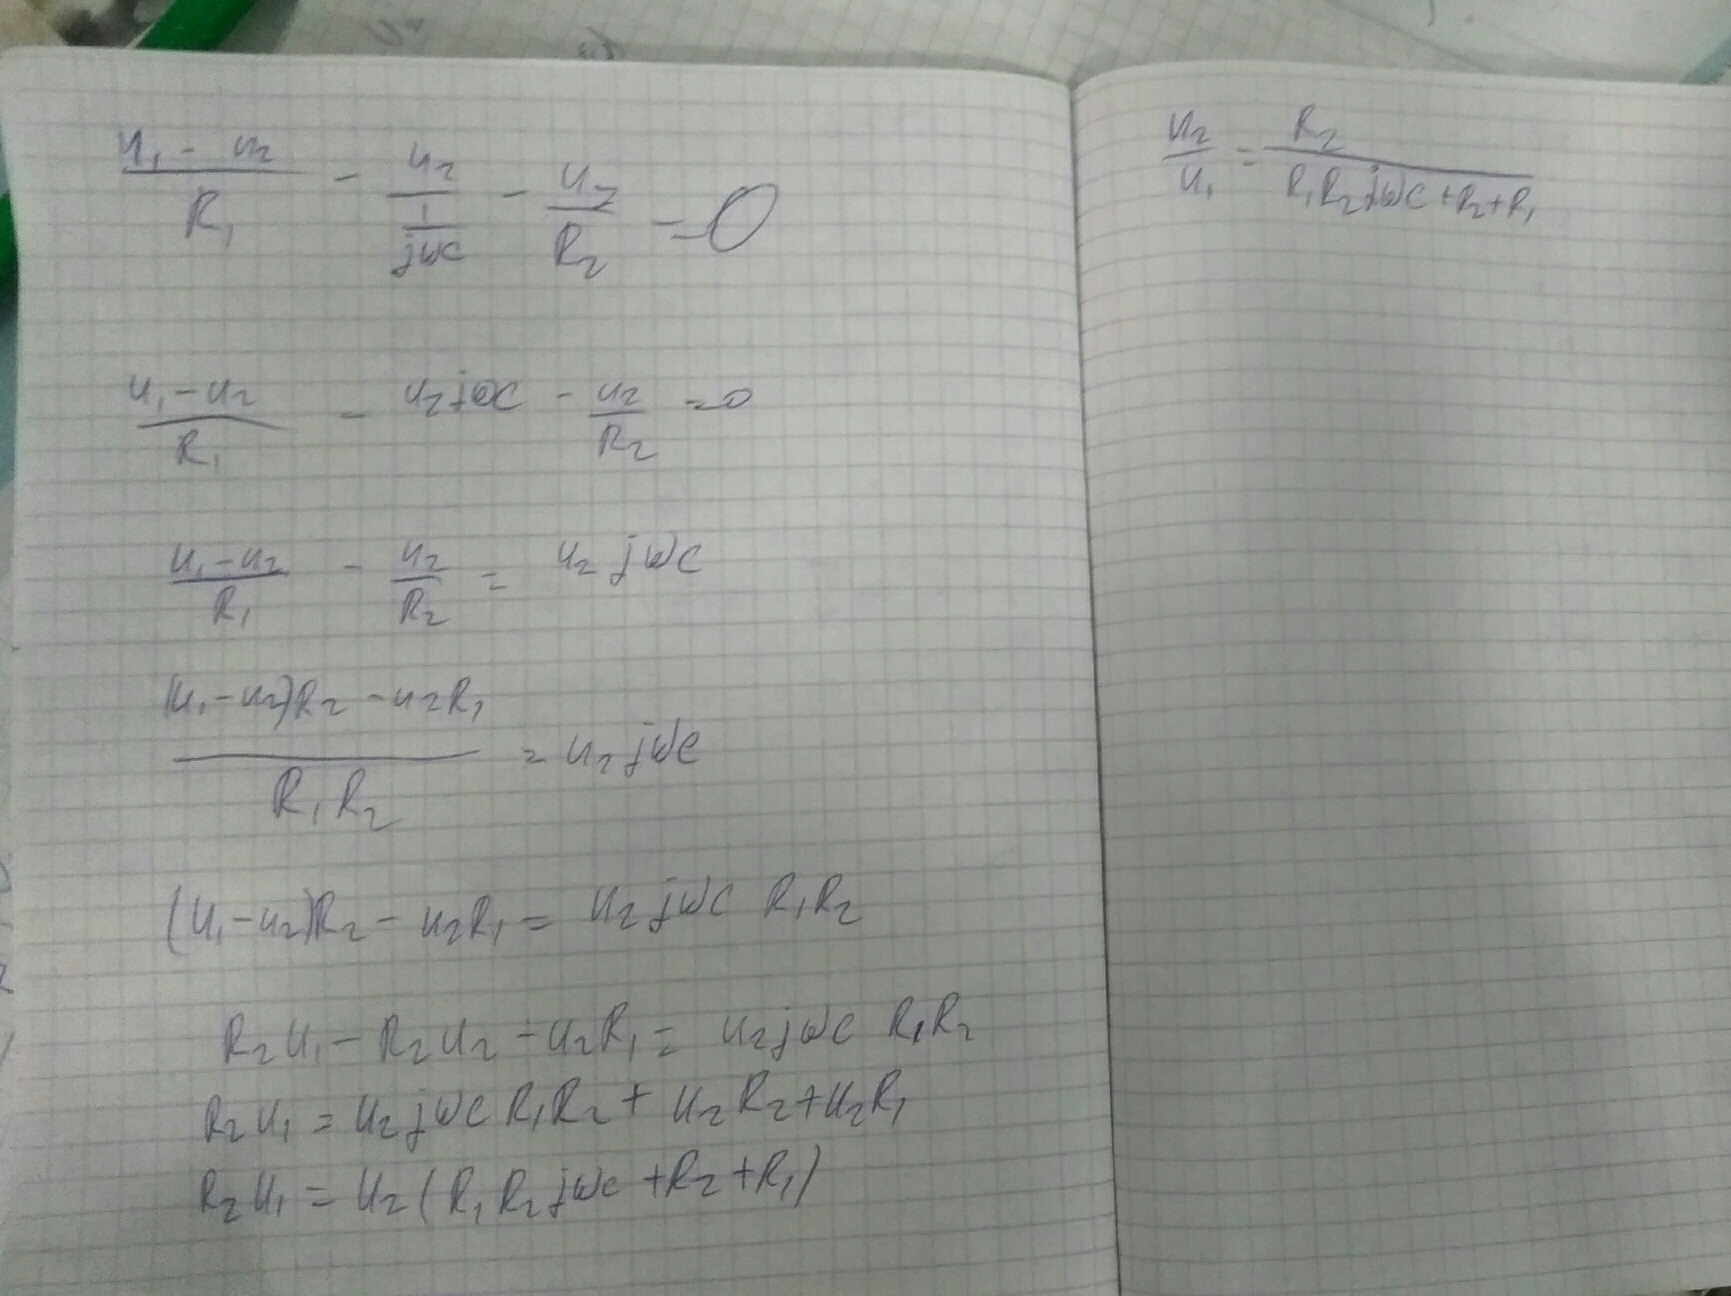 (u₁ - u₂)/R₁ - u₂/(1/(jωc)) - u₂/R₂ = 0
(u₁ - u₂)/R₁ - u₂jωc - u₂/R₂ = 0
(u₁ - u₂)/R₁ - u₂/R₂ = u₂ jωc
((u₁ - u₂)R₂ - u₂R₁)/(R₁R₂) = u₂ jωc
(u₁ - u₂)R₂ - u₂R₁ = u₂ jωc R₁R₂
R₂u₁ - R₂u₂ - u₂R₁ = u₂jωc R₁R₂
R₂u₁ = u₂jωc R₁R₂ + u₂R₂ + u₂R₁
R₂u₁ = u₂(R₁R₂jωc + R₂ + R₁)
u₂/u₁ = R₂/(R₁R₂jωc + R₂ + R₁)